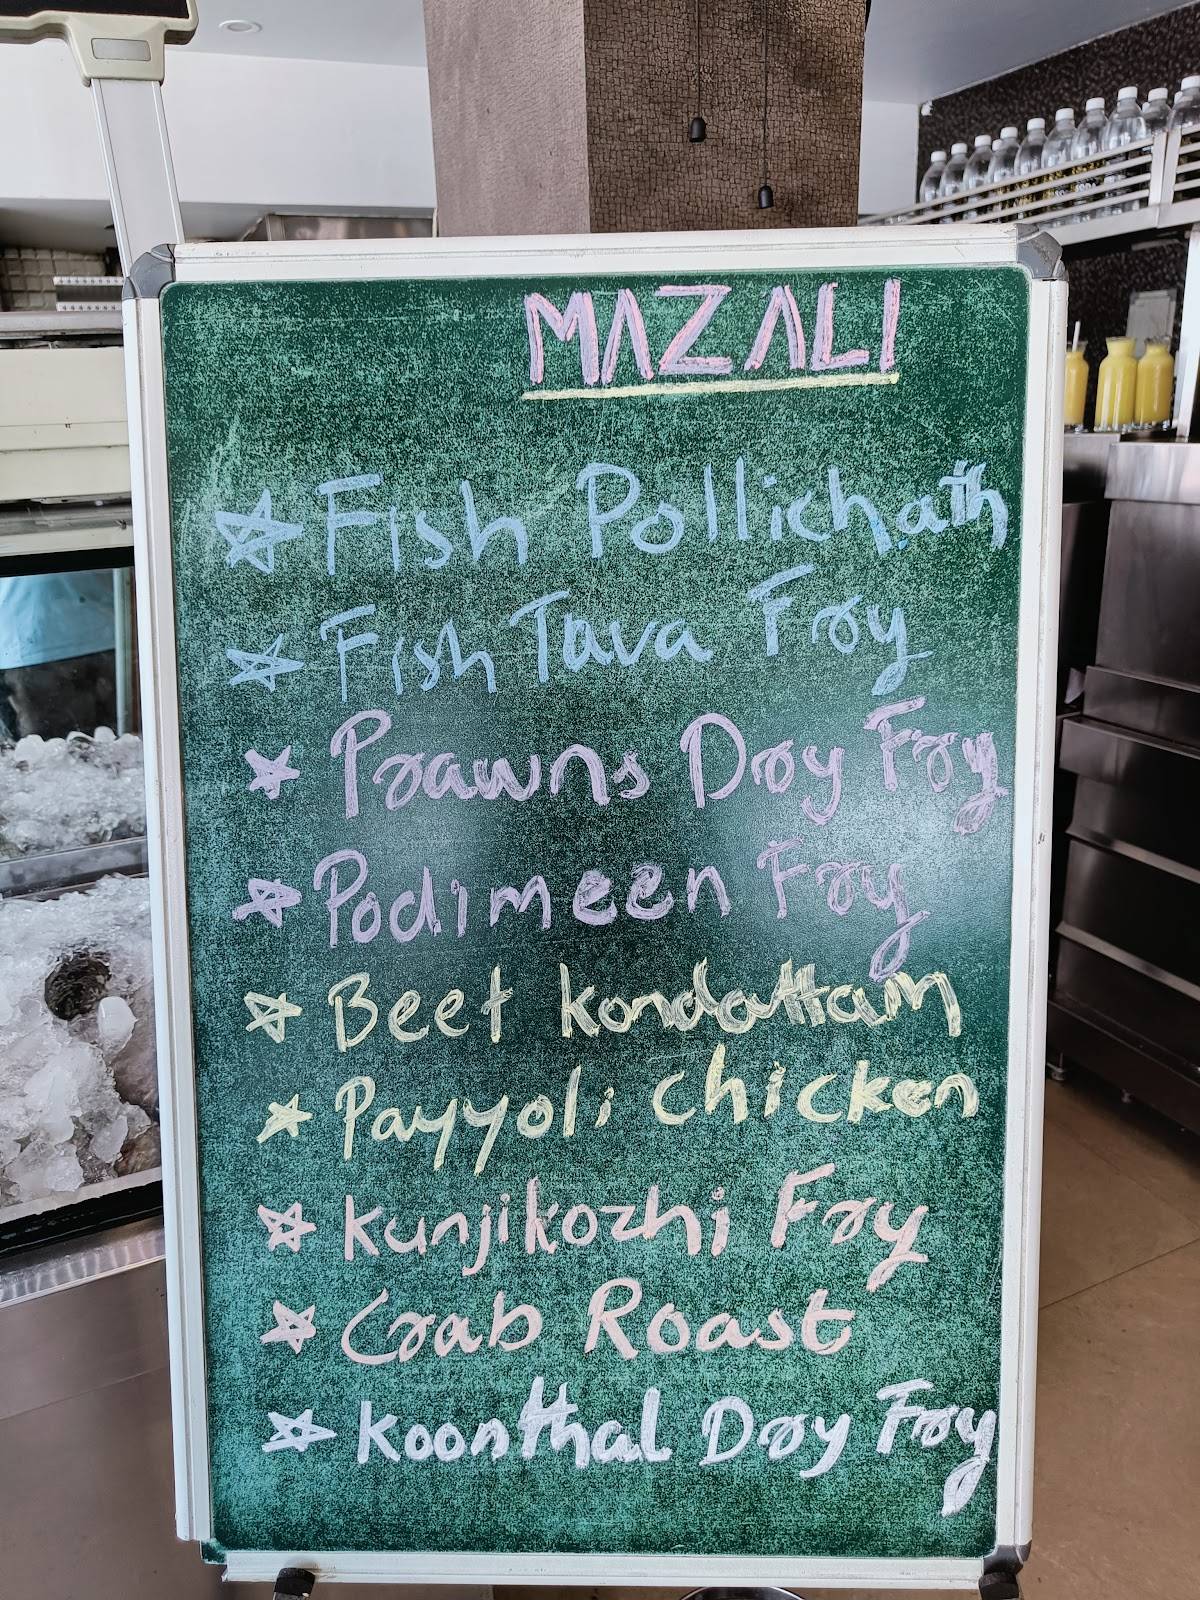 MAZALI
☆ Fish Pollichath
☆ Fish Tava Fry
☆ Prawns Dry Fry
☆ Podimeen Fry
☆ Beef Kondattam
☆ Payyoli Chicken
☆ Kunjikozhi Fry
☆ Crab Roast
☆ Koonthal Dry Fry